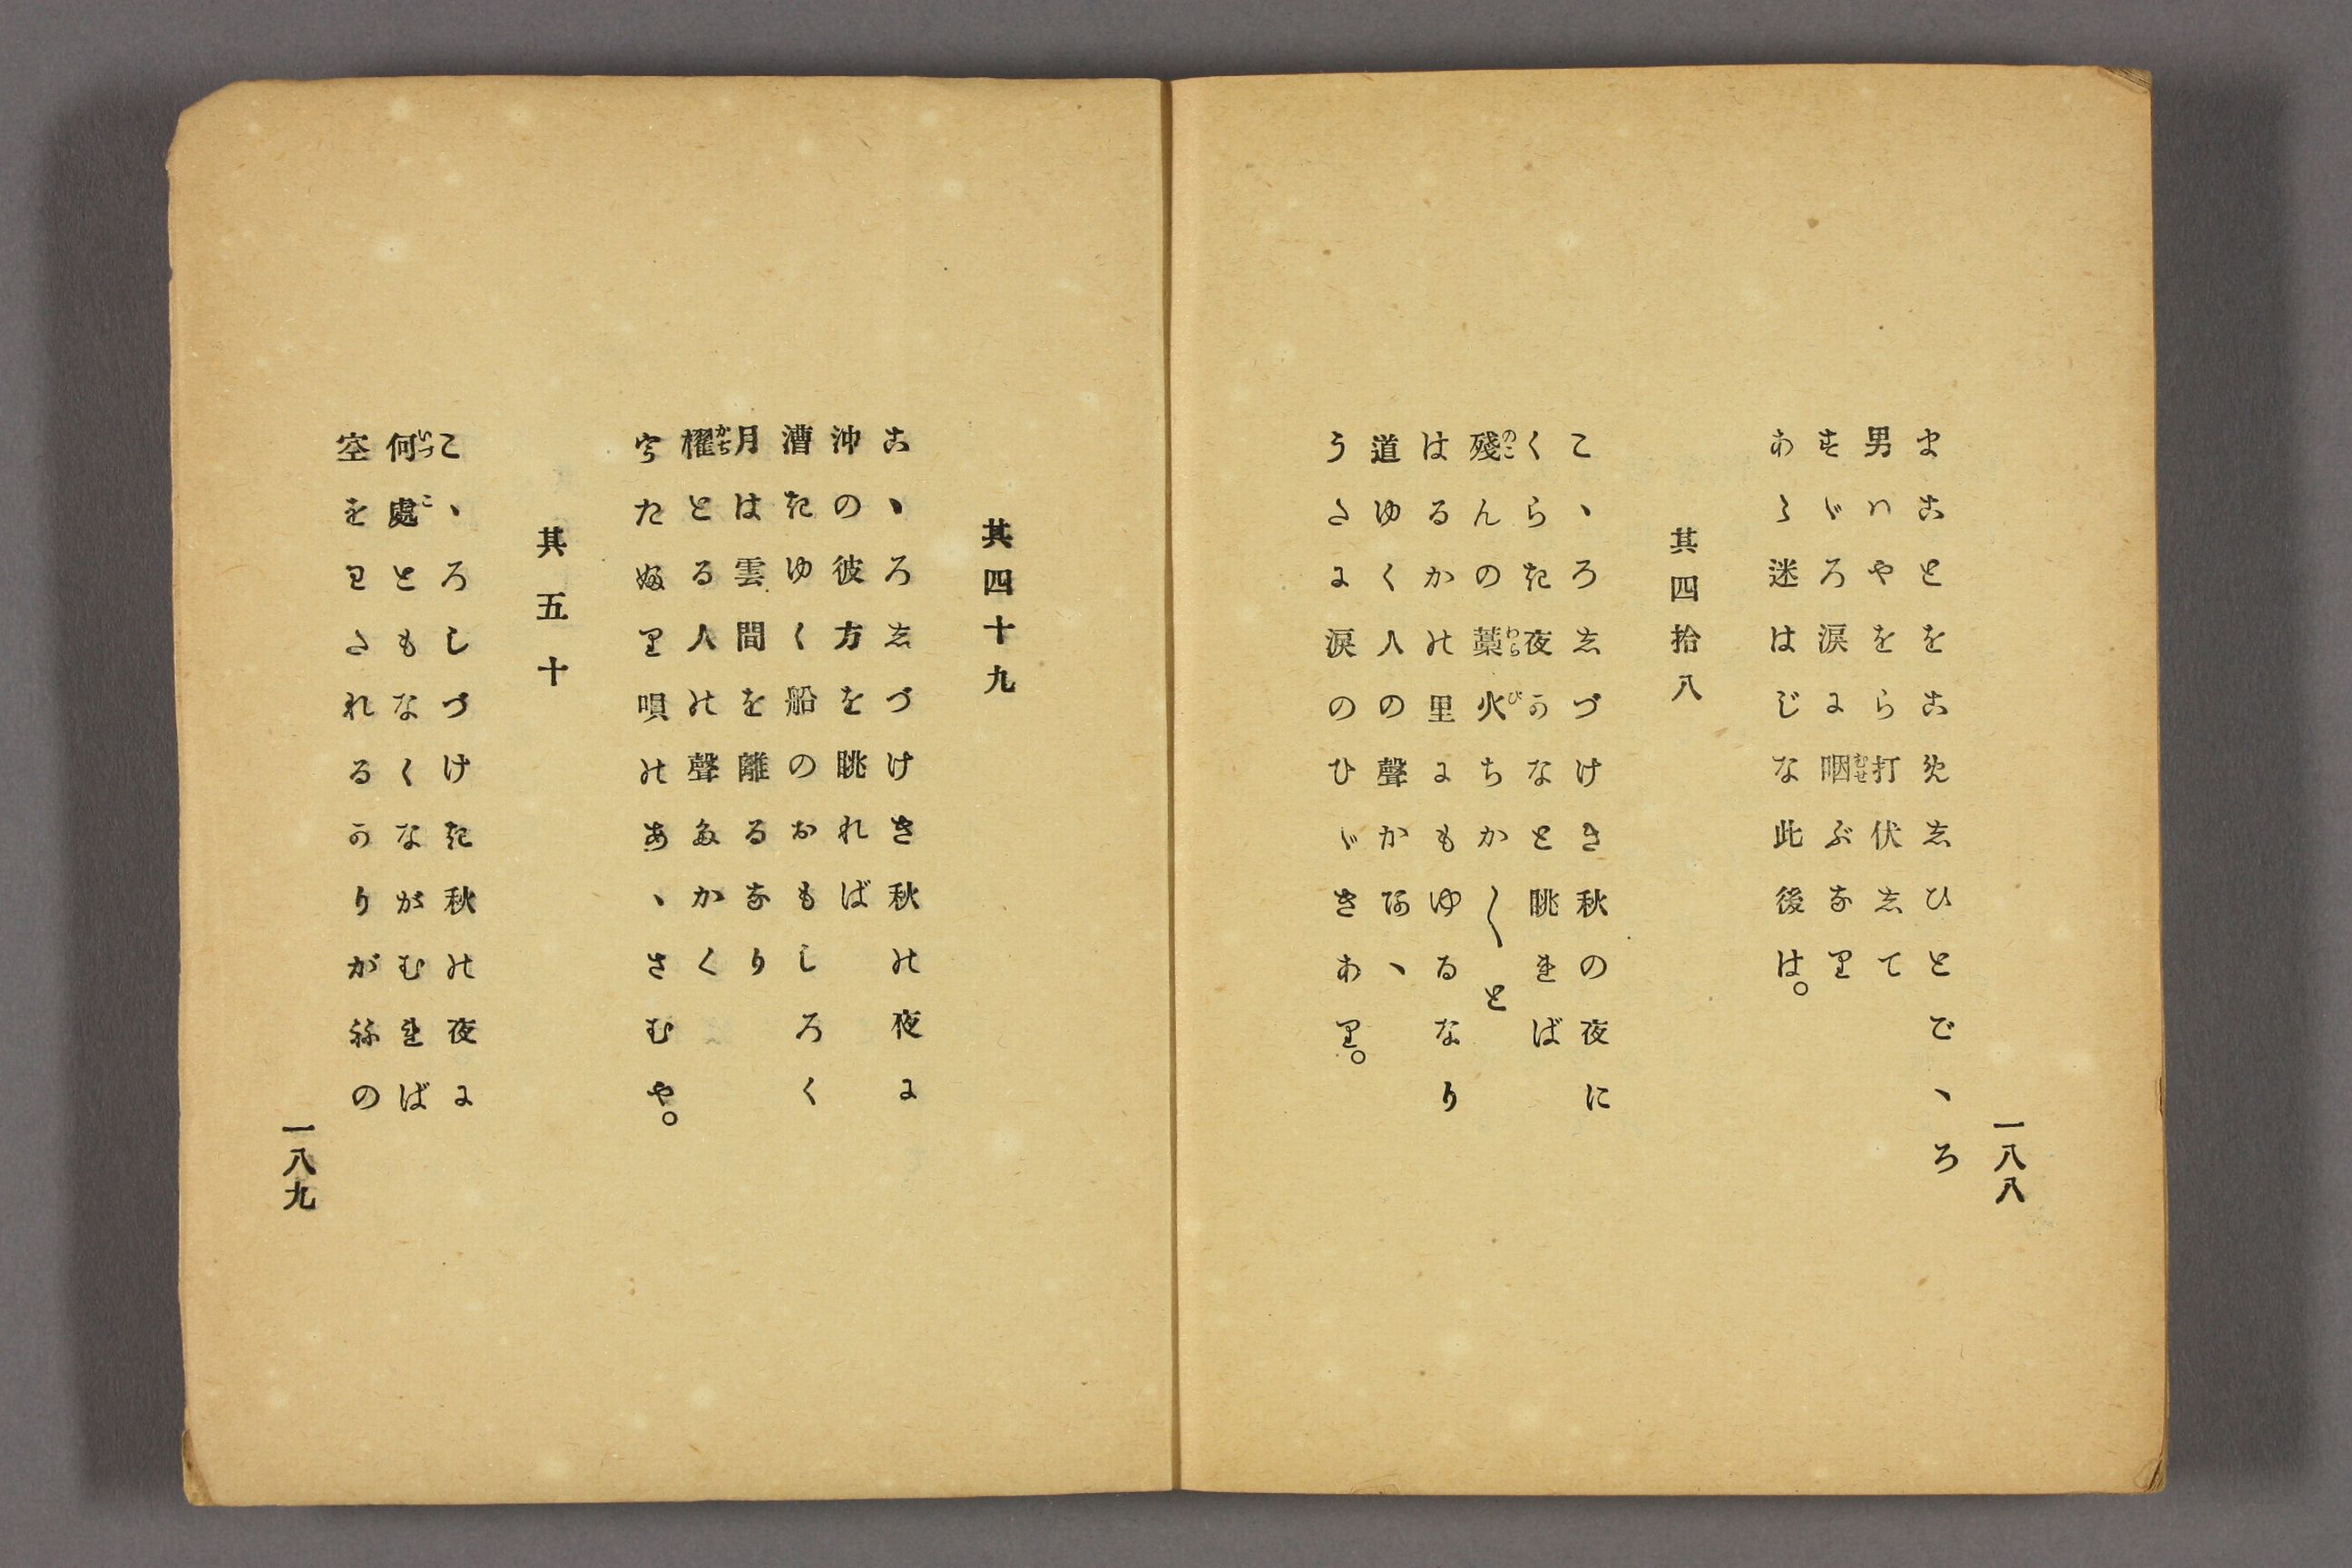 一八八
まことをこめしひとごゝろ
男はやをら打伏して
すゞろ涙に咽ぶなり
あゝ迷はじな此後は。
其四拾八
こゝろしづけき秋の夜に
くらき夜かなと眺れば
殘んの藁火ちか〱と
はるかの里にもゆるなり
道ゆく人の聲かあゝ
うたに涙のひゞきあり。
其四十九
こゝろしづけき秋の夜に
沖の彼方を眺れば
漕きゆく船のおもしろく
月は雲間を離るなり
櫂とる人の聲たかく
うたふり唄のあゝさむや。
其五十
こゝろしづけき秋の夜に
何處ともなくながむれば
空をわたれるかりがねの
一八九